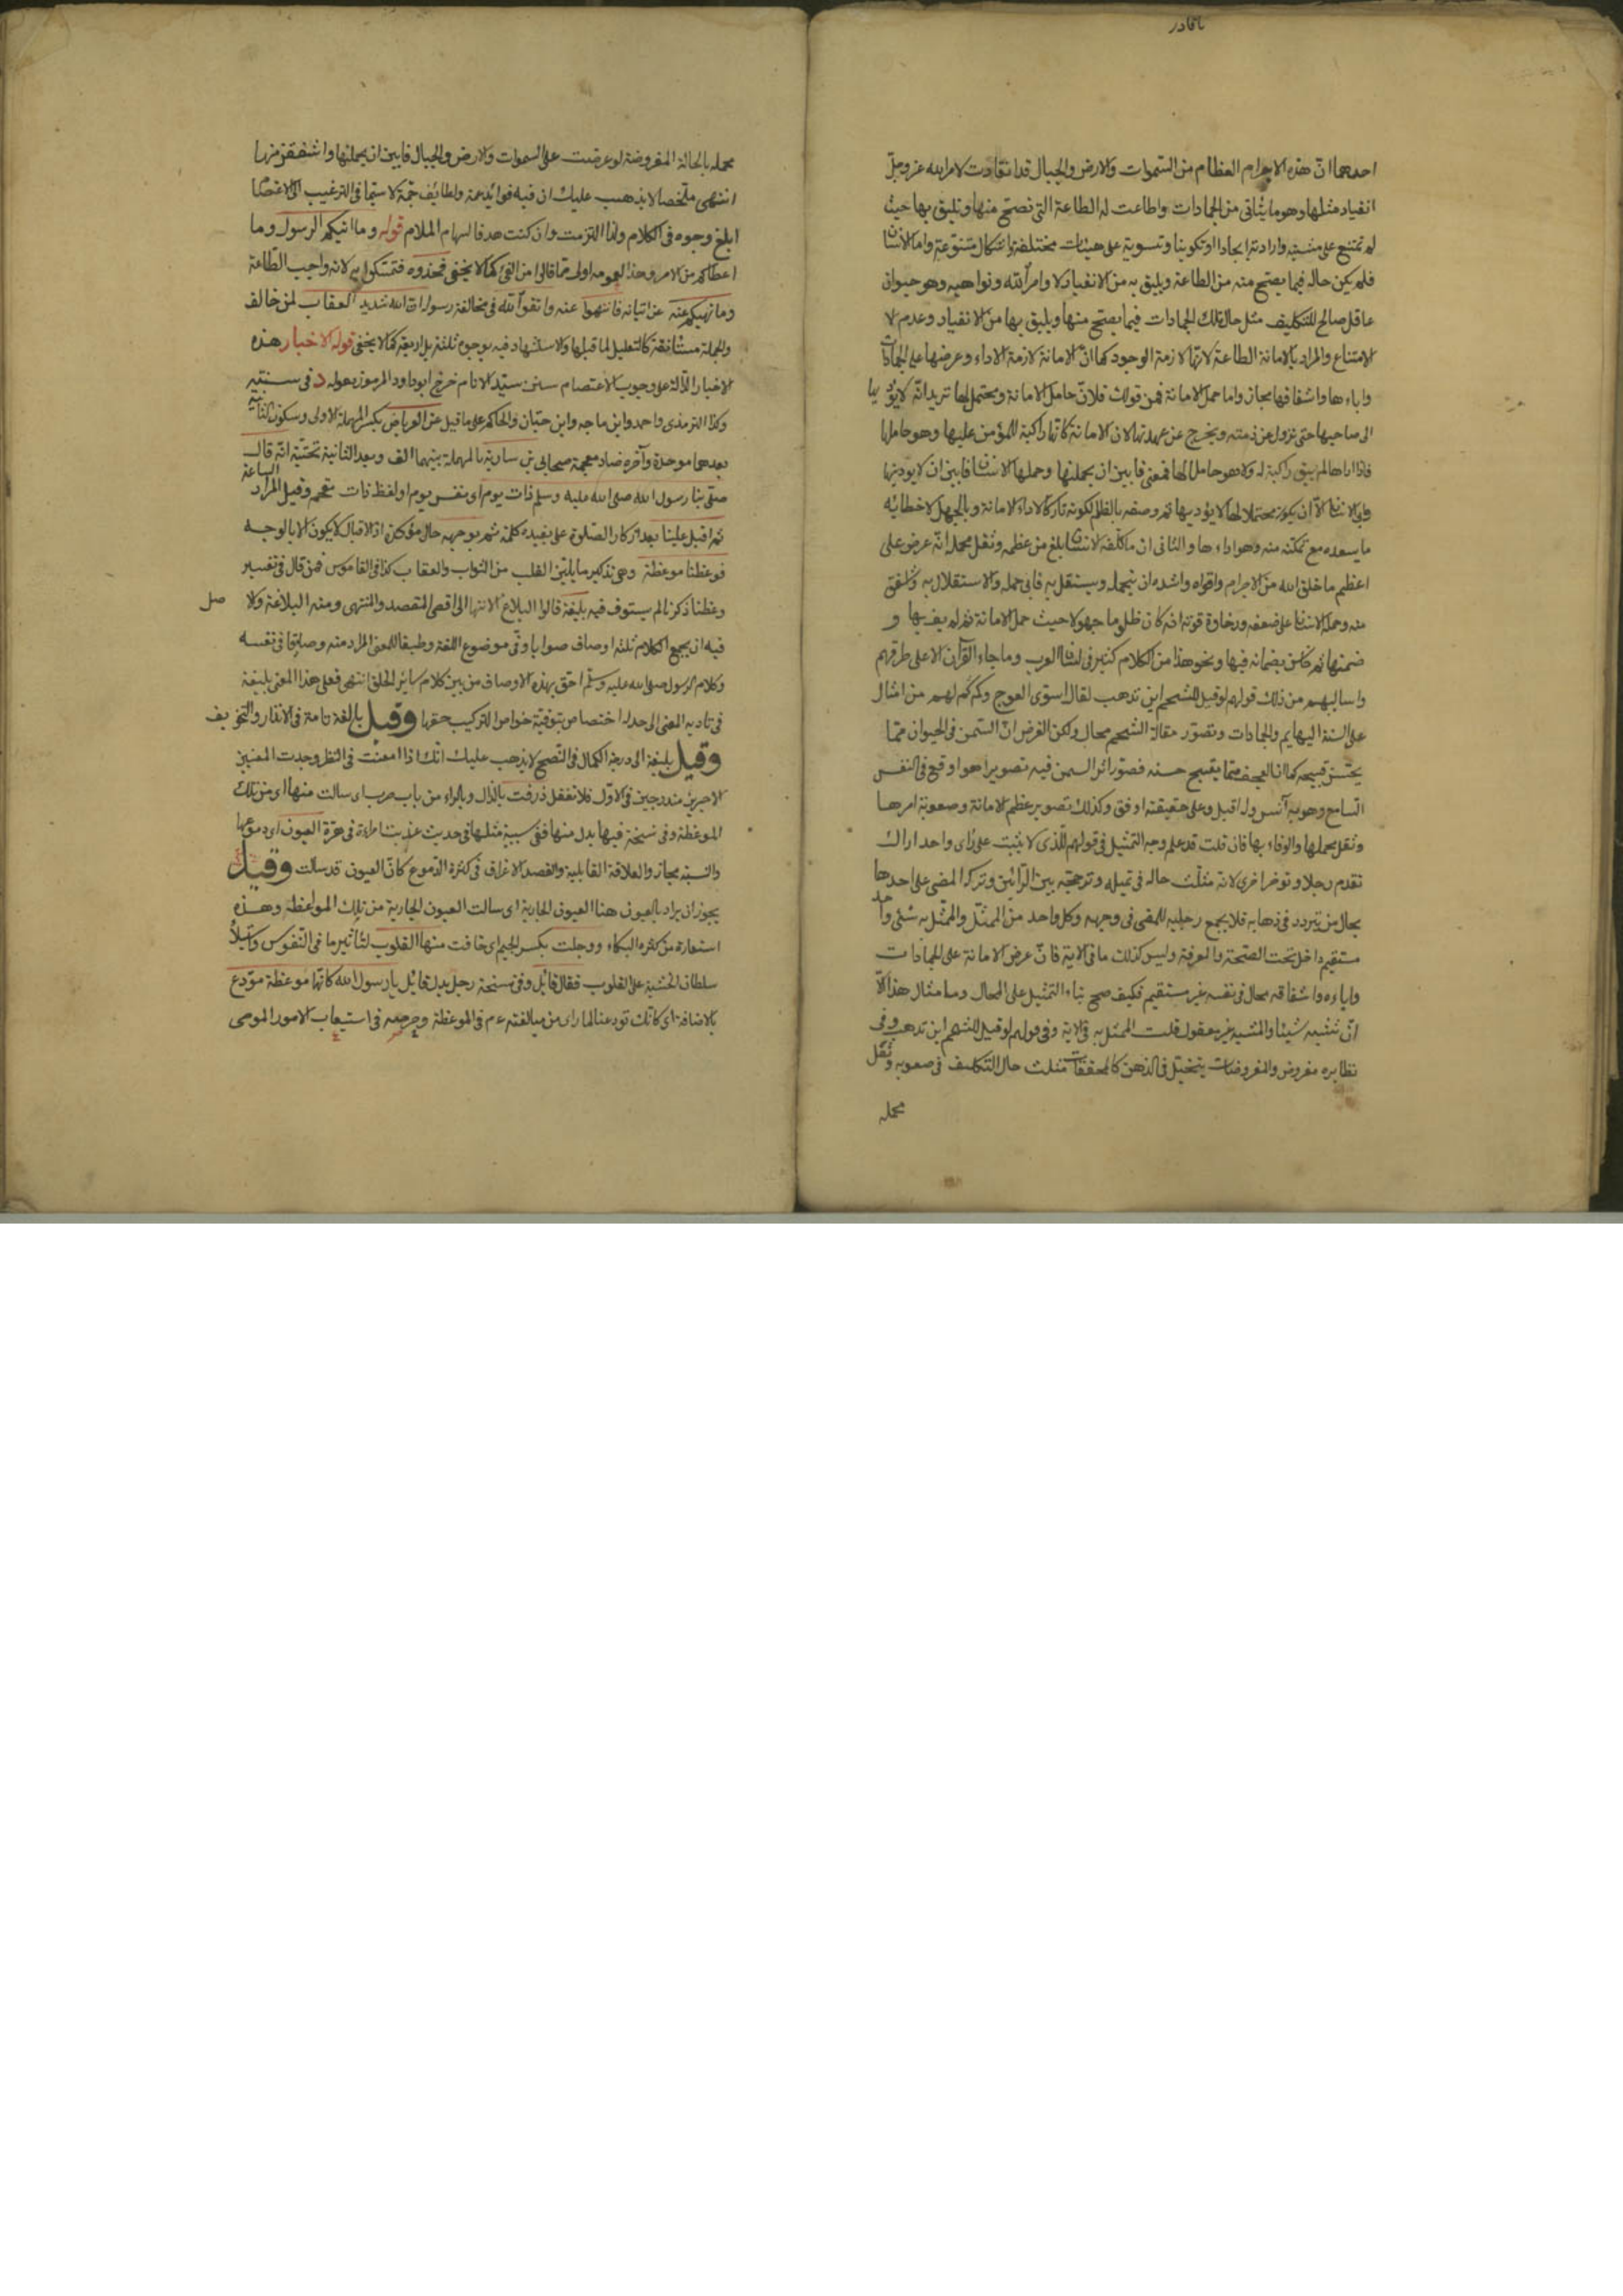 احدهما انّ هذه الاجرام العظام من السّموات والارض والجبال قد انقادت لامر الله عز وجلّ
انقياد مثلها وهو ما يتأتى من الجمادات واطاعت له الطاعة التي تصحّ منها وتليق بها حيث
لم تمتنع على مشيته وارادته ايجادا وتكوينا وتسوية على هيئات مختلفة واشكال متنوّعة واما الانسان
فلم يكن حاله فيما يصحّ منه من الطاعة ويليق به من الانقياد لاوامر الله ونواهيه وهو حيوان
عاقل صالح للتّكليف مثل حال تلك الجمادات فيما يصحّ منها ويليق بها من الانقياد وعدم
الامتناع والمراد بالامانة الطاعة لانّها لازمة الوجود كما انّ الامانة لازمة الاداء وعرضها على الجمادات
واباءها واشفاقها مجاز واما حمل الامانة فمن قولك فلانّ حامل الامانة ومحتمل لها تريد انّه لا يؤديها
الى صاحبها حتى تزول عن ذمته ويخرج عن عهدتها لان الامانة كانّها راكبة للمؤتمن عليها وهو حاملها
فاذا اداها لم يبق راكبة له ولا هو حامل لها فمعنى فابين ان يحملنها وحملها الانسان فابين ان لا يؤدينها
وابى الانسان الّا ان يكون محتملا لها لا يؤديها ثم وصفه بالظلم لكونه تاركا لاداء الامانة وبالجهل لاخطائه
ما يسعده مع تمكنه منه وهو اداءها والثانى ان ما كلّفه الانسان بلغ من عظمه وثقل محمله انّه عرض على
اعظم ما خلق الله من الاجرام واقواه واشده ان يتحمله ويستقل به فابى حمله والاستقلال به واشفق
منه وحمله الانسان على ضعفه ورخاوة قوته انه كان ظلوما جهولا حيث حمل الامانة ثم لم يف بها و
ضمنها ثم خاس بضمانه فيها ونحو هذا من الكلام كثير فى لسان العرب وما جاء القرآن الا على طرقهم
واساليبهم من ذلك قولهم لو قيل للشحم اين تذهب لقال اسوّى العوج وكم كم لهم من امثال
على السنة البهايم والجمادات وتصوّر مقالة الشحم محال ولكن الغرض انّ السّمن فى الحيوان ممّا
يحسّن قبيحه كما ان العجف ممّا يقبح حسنه فصوّر اثر السمن فيه تصويرا هو اوقع فى النفس
السامع وهو به آنس وله اقبل وعلى حقيقته اوقف وكذلك تصوير عظم الامانة وصعوبة امرها
وثقل محملها والوفاء بها فان قلت قد علم وجه التمثيل فى قولهم للّذى لا يثبت على رأى واحد اراك
تقدم رجلا وتؤخر اخرى لانه مثّلت حاله فى تميله وترجحه بين الرّأيين وتركه المضى على احدهما
بحال من يتردد فى ذهابه فلا يجمع رجليه للمضى فى وجهه وكل واحد من الممثّل والممثّل به شئ واحد
مستقيم داخل تحت الصّحة والمعرفة وليس كذلك ما فى الاية فانّ عرض الامانة على الجمادات
واباءه واشفاقه محال فى نفسه غير مستقيم فكيف صحّ بناء التمثيل على المحال وما مثال هذا الّا
انّ تشبه شيئا والمشبه به غير معقول قلت الممثل به فى الاية وفى قولهم لو قيل للشحم اين تذهب وفى
نظايره مفروض والمفروضات يتخيّل فى الذهن كالمحققات مثلت حال التكليف فى صعوبته وثقل
محمله
محمله بالحالة المفروضة لو عرضت على السموات والارض والجبال فابين ان يحملنها واشفقن منها
انتهى ملخصا لا يذهب عليك ان فيه فوائد جمة ولطائف
ابلغ وجوه فى الكلام ولذا التزمت وان كنت هدفا لسهام الملام قوله وما اتيكم الرسول وما
اعطاكم من الامر وهذا العموم اولى ممّا قالوا من الفئ كما لا يخفى فخذوه فتمسّكوا به لانه واجب الطّاعة
وما نهيكم عنه عن اتيانه فانتهوا عنه واتقوا الله فى مخالفة رسوله ان الله شديد العقاب لمن خالف
والجملة مستأنفة كالتعليل لما قبلها والاستشهاد فيه بوجوه ثلثة بل اربعة كما لا يخفى قوله الاخبار هذه
الاخبار الدّالة على وجوب الاعتصام بسنن سيّد الانام خرّج ابو داود المرموز بقوله د فى سننه
وكذا الترمذى واحمد وابن ماجه وابن حبّان والحاكم على ما قيل عن العرباض بكسر المهملة الاولى وسكون الثانية
بعدها موحدة وآخره ضاد معجمة صحابى بن سارية بالمهملة بينهما الف وبعد الثانية تحتيّة انّه قال
صلّى بنا رسول الله صلى الله عليه وسلم ذات يوم اى نفس يوم او لفظ ذات مقحم وقيل المراد الساعة
ثم اقبل علينا بعد اذكار الصّلوة على بفيده كلمة ثم بوجهه حال مؤكدة اذ الاقبال لا يكون الا بالوجه
فوعظنا موعظة وهى تذكير ما يليّن القلب من الثواب والعقاب كذا فى القاموس فمن قال فى تفسير
وعظنا ذكرنا لم يستوف فيه بليغة قالوا البلاغ الانتهاء الى اقصى المقصد والمنتهى ومنه البلاغة ولا صل
فيه ان يجمع الكلام ثلثة اوصاف صوابا وفى موضوع اللغة وطبقا للمعنى المراد منه وصادقا فى نفسه
وكلام الرسول صلى الله عليه وسلم احق بهذه الاوصاف من بين كلام سائر الخلق انتهى فعلى هذا المعنى بليغة
فى تاديه المعنى الى حد له اختصاص بتوفية خواص التركيب حقها وقيل بالغة تامة فى الانذار والتخويف
وقيل بليغة الى درجة الكمال فى النّصح لا يذهب عليك انّك اذا امعنت فى النظر وجدت المعنيين
الاخيرين مندرجين فى الاوّل فلا تغفل ذرفت بالذّال وبالراء من باب ضرب اى سالت منها اى من تلك
الموعظة وفى نسخة فيها بدل منها ففى سببية مثلها فى حديث عذبت امراة فى هرّة العيون اى دموعها
والنسبة مجاز والعلاقة القابلية والقصد الاغراق فى كثرة الدّموع كانّ العيون قد سالت وقيل
يجوز ان يراد بالعيون هنا العيون الجارية اى سالت العيون الجارية من تلك المواعظ وهذه
استعارة من كثرة البكاء ووجلت بكسر الجيم اى خافت منها القلوب لتأثيرها فى النّفوس
سلطان الخشية على القلوب فقال قائل وفى نسخة رجل بدل قائل يا رسول الله كانّها موعظة مودّع
بالاضافة اى كانّك تودعنا لما راى من مبالغته عم فى الموعظة وحرصه فى استيعاب الامور